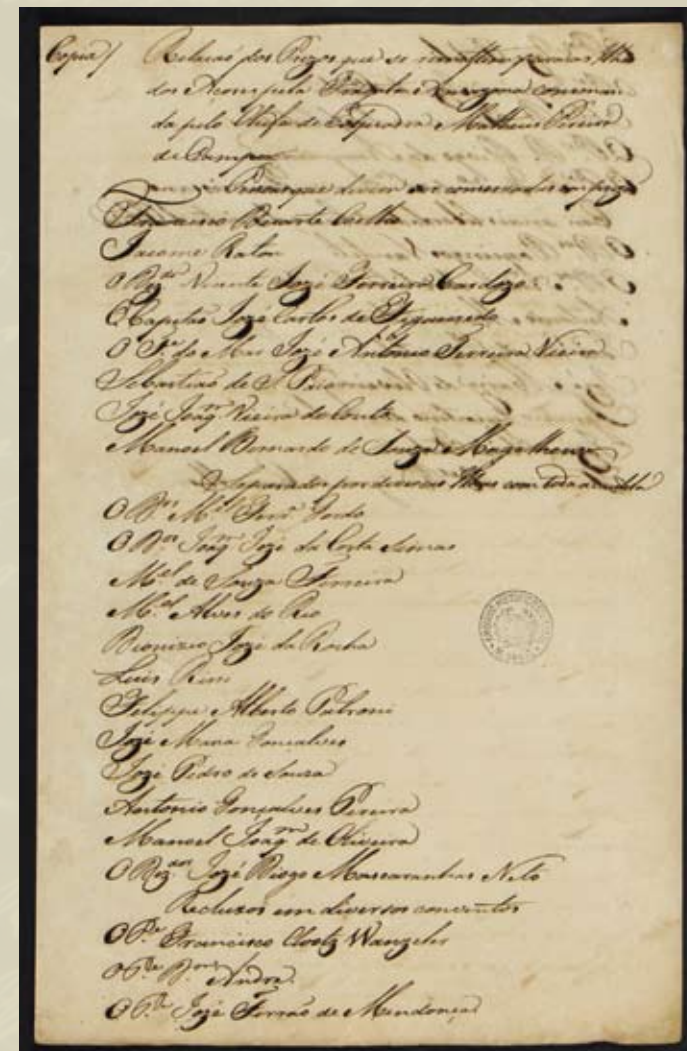 Copia / Relação dos Prezos que se remettem para as Ilhas
dos Açores pela Fragata Amazona comman-
da pelo Chefe de Esquadra Matheus Pereira
de Campos
Prezos que devem ser conservados em prizão
Francisco Duarte Coelho
Jacome Raton
O Dez.dor Vicente Jozé Ferreira Cardozo
O Capitão Jozé Carlos de Figueiredo
O do Mar Jozé Antonio Ferreira Vieira
Sebastião de S.
Jozé Joaq.m Vieira do Couto
Manoel Bernardo de Souza Magalhaens
Separados por diversas Ilhas com toda a cautela
O M.el Ferr.a Gordo
O Joaq.m Jozé da Costa Simas
M.el de Souza Ferreira
M.el Alves do Rio
Dionizio Jozé da Rocha
Luis
Felippe Alberto Patroni
Jozé Maria Goncalves
Jozé Pedro de Souza
Antonio Gonçalves Pereira
Manoel Joaq.m de Oliveira
O Dez.dor Jozé Diogo Mascaranhas Neto
Recluzos em diversos conventos
O P.e Francisco Wanzeler
O P.e André
O P.e Jozé Ferrão de Mendonça